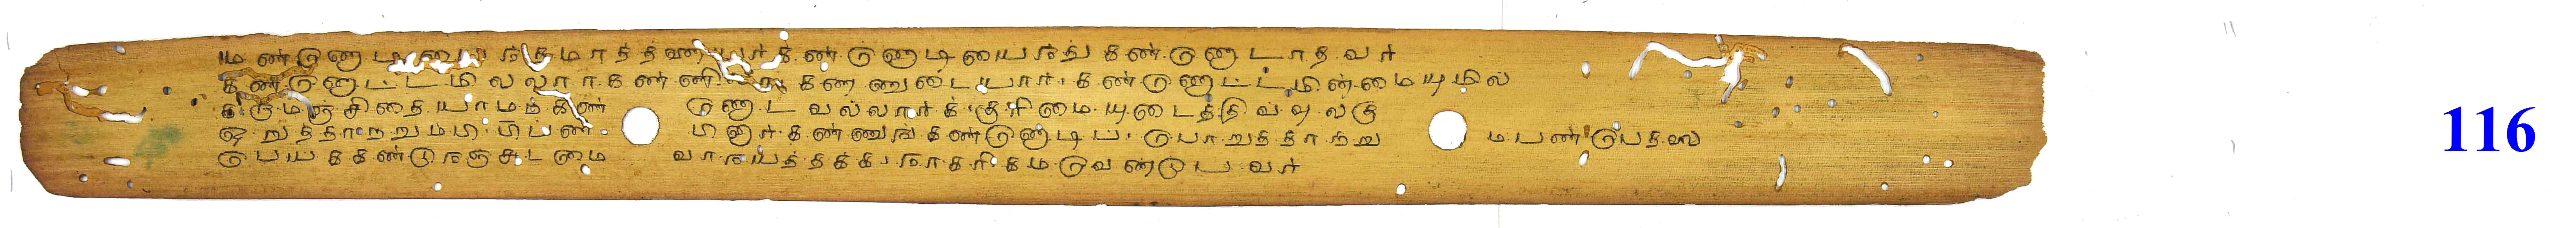 மண்ணொடியைந்தமரத்தனையர்கண்ணொடியைந்துகண்ணொடாதவர்
கண்ணொட்டமில்லார்கண்ணிலர்கண்ணுடையார்கண்ணொட்டமின்மையுமில்
கருமஞ்சிதையாமற்கண் ணொடவல்லார்க்குரிமையுடைத்திவ்வுலகு
ஒறுத்தாற்றும்பண் பினார்கண்ணுங்கண்ணொடிப்பொறுத்தாற்று ம்பண்பெதலை
பெயக்கண்டுநஞ்சுடமை வர்நயத்தக்கநாகரிகமவெண்டுபவர்
116